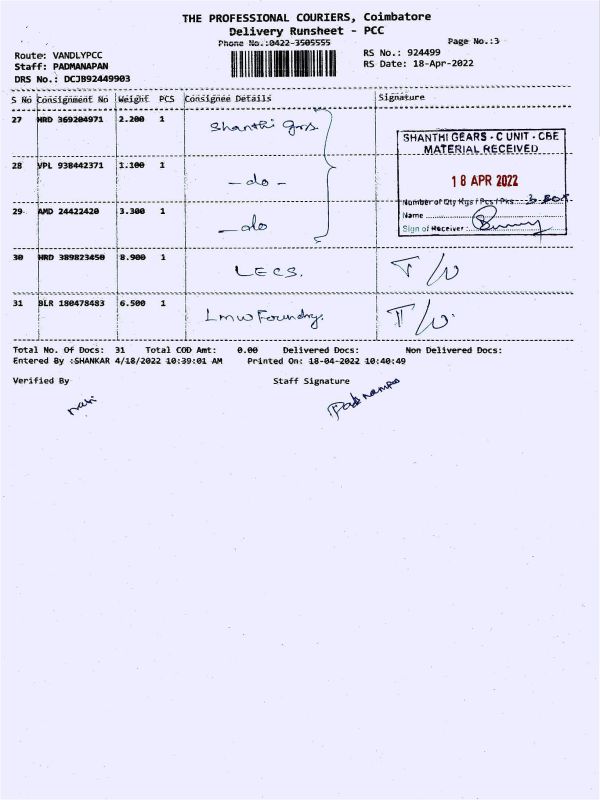 THE PROFESSIONAL COURIERS, Coimbatore
Delivery Runsheet - PCC
Phone No.:0422-3505555
Page No.:3
Route: VANDLYPCC
RS No.: 924499
Staff: PADMANAPAN
RS Date: 18-Apr-2022
DRS No.: DCJB92449903
S No Consignment No Weight PCS Consignee Details Signature
27 HRD 369204971 2.200 1 Shanthi Grs.
SHANTHI GEARS - C UNIT - CBE
MATERIAL RECEIVED
28 VPL 938442371 1.100 1 - do -
18 APR 2022
Number of Qty Kgs / Pcs / Pks 3 Box
29 AMD 24422420 3.300 1 - do
Name
Sign of Receiver :
30 HRD 389823450 8.900 1 LECS. T/W
31 BLR 180478483 6.500 1 LMW Foundry. T/W
Total No. Of Docs: 31 Total COD Amt: 0.00 Delivered Docs: Non Delivered Docs:
Entered By :SHANKAR 4/18/2022 10:39:01 AM Printed On: 18-04-2022 10:40:49
Verified By Staff Signature